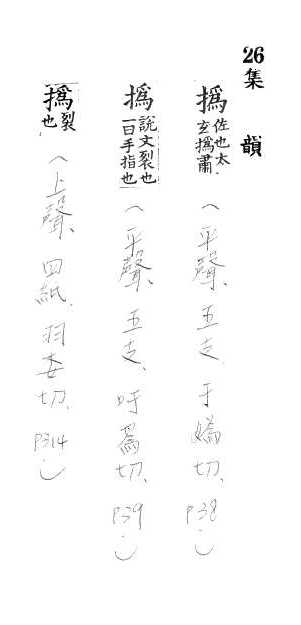 26 集韻
撝 佐也太玄撝肅 (平聲、五支、于嬀切、P38。)
撝 說文裂也一曰手指也 (平聲、五支、吁爲切、P39。)
撝 裂也 (上聲、四紙、羽委切、P314。)